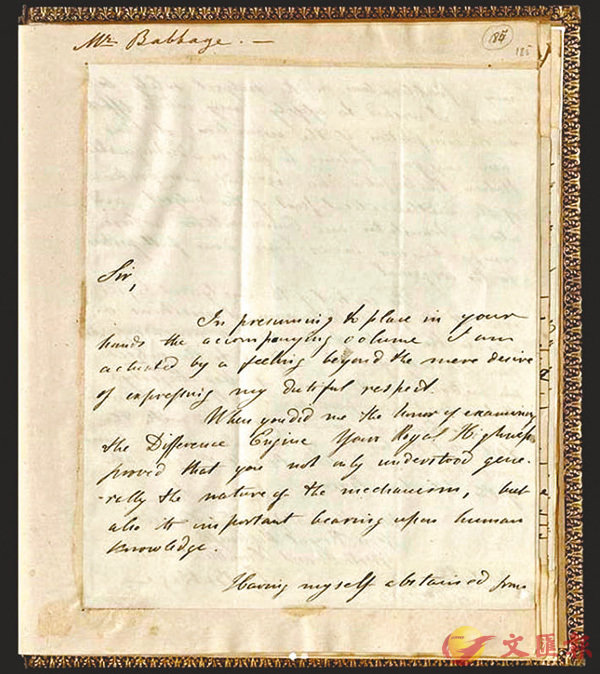 Mr Babbage. —
185
Sir,
In presuming to place in your
hands the accompanying volume I am
actuated by a feeling beyond the mere desire
of expressing my dutiful respect.
When you did me the honor of examining
the Difference Engine Your Royal Highness
proved that you not only understood gene-
-rally the nature of the mechanism, but
also its important bearing upon human
knowledge.
Having myself abstained from
文匯報